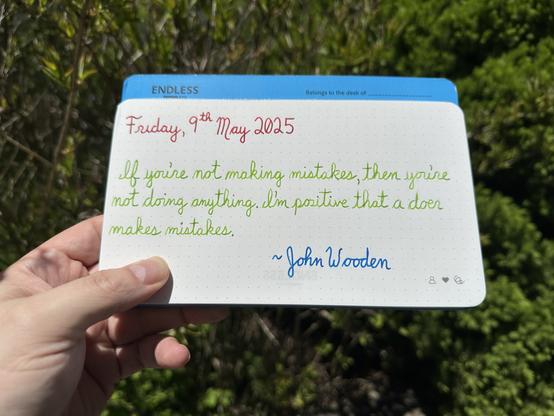 ENDLESS
Belongs to the desk of
Friday, 9th May 2025
If you're not making mistakes, then you're
not doing anything. I'm positive that a doer
makes mistakes.
~John Wooden